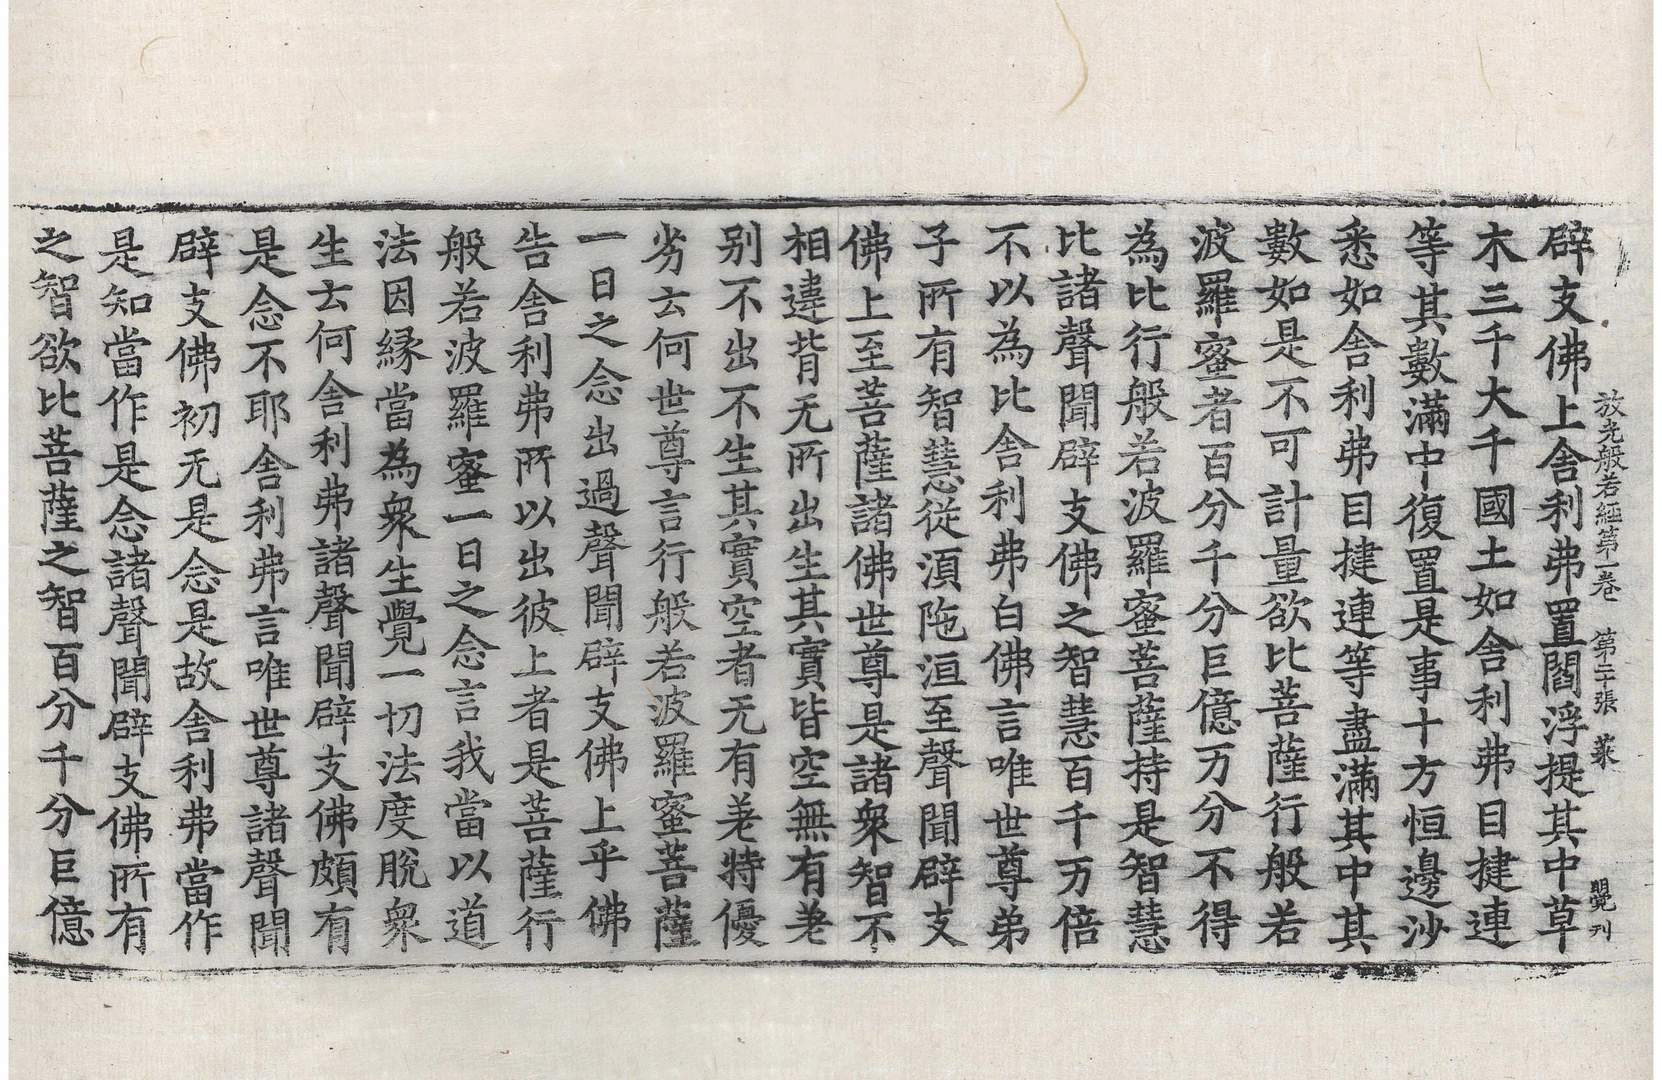 放光般若經第一卷　第二十張　菜　覺刊
辟支佛上舍利弗置閻浮提其中草
木三千大千國土如舍利弗目揵連
等其數滿中復置是事十方恒邊沙
悉如舍利弗目揵連等盡滿其中其
數如是不可計量欲比菩薩行般若
波羅蜜者百分千分巨億万分不得
為比行般若波羅蜜菩薩持是智慧
比諸聲聞辟支佛之智慧百千万倍
不以為比舍利弗白佛言唯世尊弟
子所有智慧從湏陁洹至聲聞辟支
佛上至菩薩諸佛世尊是諸衆智不
相違背无所出生其實皆空無有差
別不出不生其實空者无有差特優
劣云何世尊言行般若波羅蜜菩薩
一日之念出過聲聞辟支佛上乎佛
告舍利弗所以出彼上者是菩薩行
般若波羅蜜一日之念言我當以道
法因縁當為衆生覺一切法度脫衆
生云何舍利弗諸聲聞辟支佛頗有
是念不耶舍利弗言唯世尊諸聲聞
辟支佛初无是念是故舍利弗當作
是知當作是念諸聲聞辟支佛所有
之智欲比菩薩之智百分千分巨億